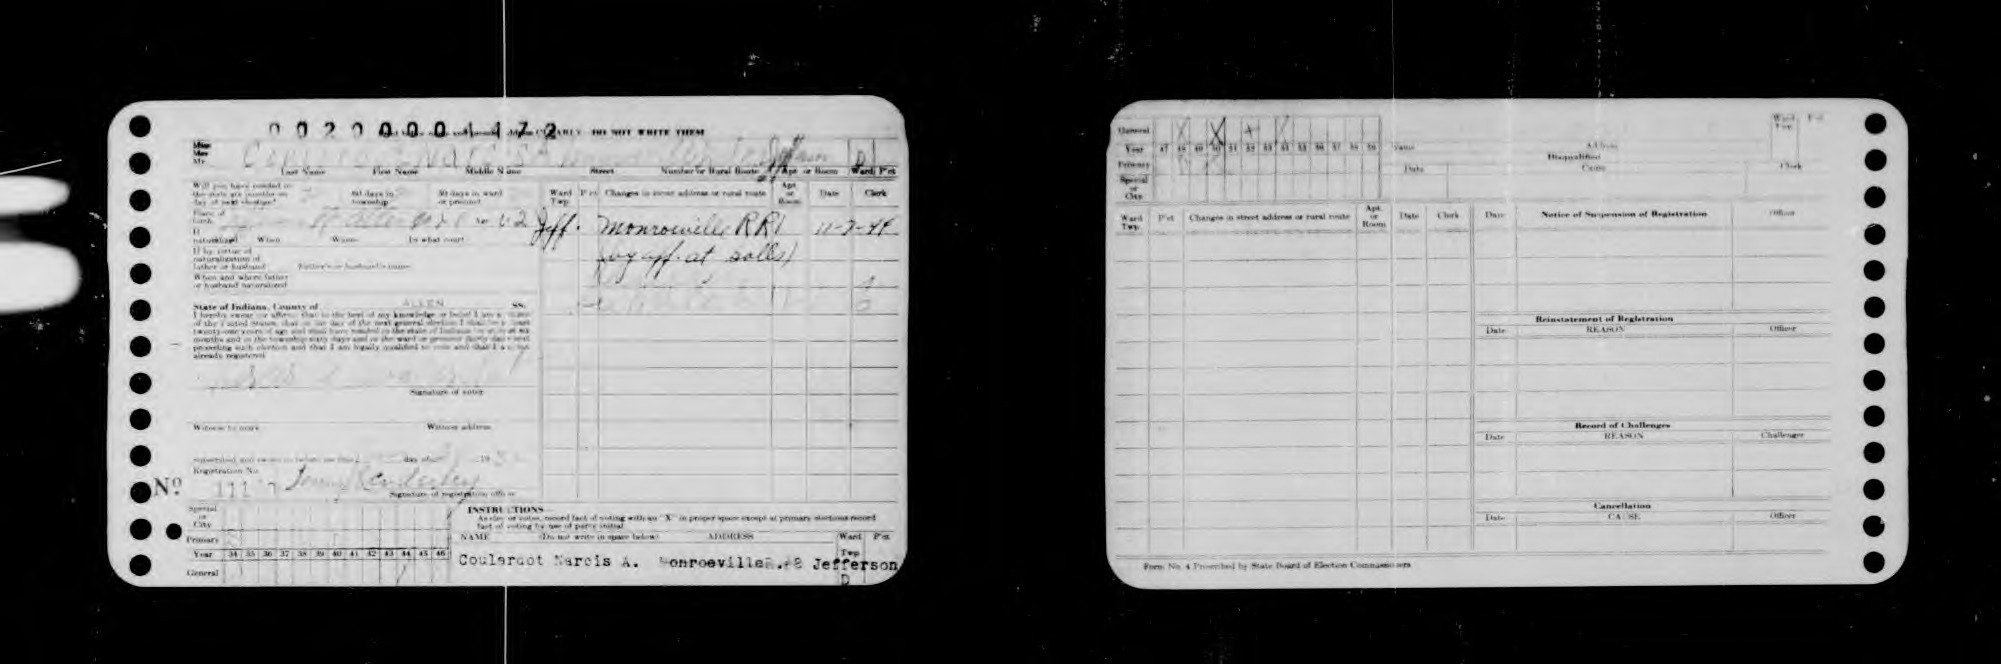 0020000 1 472
CLEARLY - DO NOT WRITE THEM
Miss
Mrs
Mr.
D
Last Name First Name Middle Name Street Number or Rural Route Apt. or Room Ward P'ct
Will you have resided in
the state six months on
day of next election?
60 days in
township
30 days in ward
or precinct
Ward
Twp.
P'ct
Changes in street address or rural route
Apt.
or
Room
Date
Clerk
Place of
birth
Age 62
Jeff. Monroeville RR1 11-7-44
(by aff. at polls)
If
naturalized When Where In what court
If by virtue of
naturalization of
father or husband Father's or husband's name
When and where father
or husband naturalized
State of Indiana, County of ALLEN SS.
I hereby swear (or affirm) that to the best of my knowledge or belief I am a
of the United States, that on the day of the next general election I shall be at least
twenty-one years of age and shall have resided in the state of Indiana six
months and in the township sixty days and in the ward or precinct thirty days next
preceding such election and that I am legally qualified to vote and that I am not
already registered
Signature of voter
Witness to mark Witness address
Subscribed and sworn to before me this day of 19
Registration No.
Nº 111
Signature of registration officer
Special
or
City
Primary
Year 34 35 36 37 38 39 40 41 42 43 44 45 46
General
INSTRUCTIONS
As city or votes, record fact of voting with an "X" in proper space except at primary elections record
fact of voting by use of party initial
NAME (Do not write in space below) ADDRESS Ward P'ct
Twp.
Coulardot Narcis A. Monroeville R.#2 Jefferson
D
General X X X
Year 47 48 49 50 51 52 53 54 55 56 57 58 59
Primary
Special
or
City
Name Address
Ward
Twp.
P'ct
Disqualified
Date Cause Clerk
Ward
Twp.
P'ct
Changes in street address or rural route
Apt.
or
Room
Date
Clerk
Date Notice of Suspension of Registration Officer
Reinstatement of Registration
Date REASON Officer
Record of Challenges
Date REASON Challenger
Cancellation
Date CAUSE Officer
Form No. 4 Prescribed by State Board of Election Commissioners